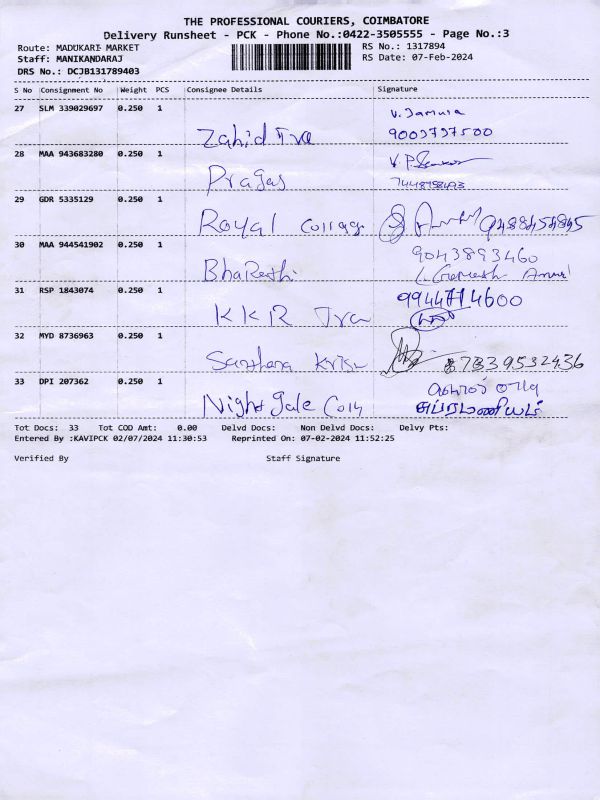 THE PROFESSIONAL COURIERS, COIMBATORE
Delivery Runsheet - PCK - Phone No.:0422-3505555 - Page No.:3
Route: MADUKARI MARKET
RS No.: 1317894
Staff: MANIKANDARAJ
RS Date: 07-Feb-2024
DRS No.: DCJB131789403
S No Consignment No Weight PCS Consignee Details Signature
27 SLM 339029697 0.250 1 V. Jamuna
Zahid Tra 9003737500
28 MAA 943683280 0.250 1
Pragas
29 GDR 5335129 0.250 1
Royal
30 MAA 944541902 0.250 1 9043893460
Bharathi
31 RSP 1843074 0.250 1 9944714600
KKR Tra
32 MYD 8736963 0.250 1
Santhana Krish
33 DPI 207362 0.250 1
Nightgale
சுப்ரமணியம்
Tot Docs: 33 Tot COD Amt: 0.00 Delvd Docs: Non Delvd Docs: Delvy Pts:
Entered By :KAVIPCK 02/07/2024 11:30:53 Reprinted On: 07-02-2024 11:52:25
Verified By Staff Signature